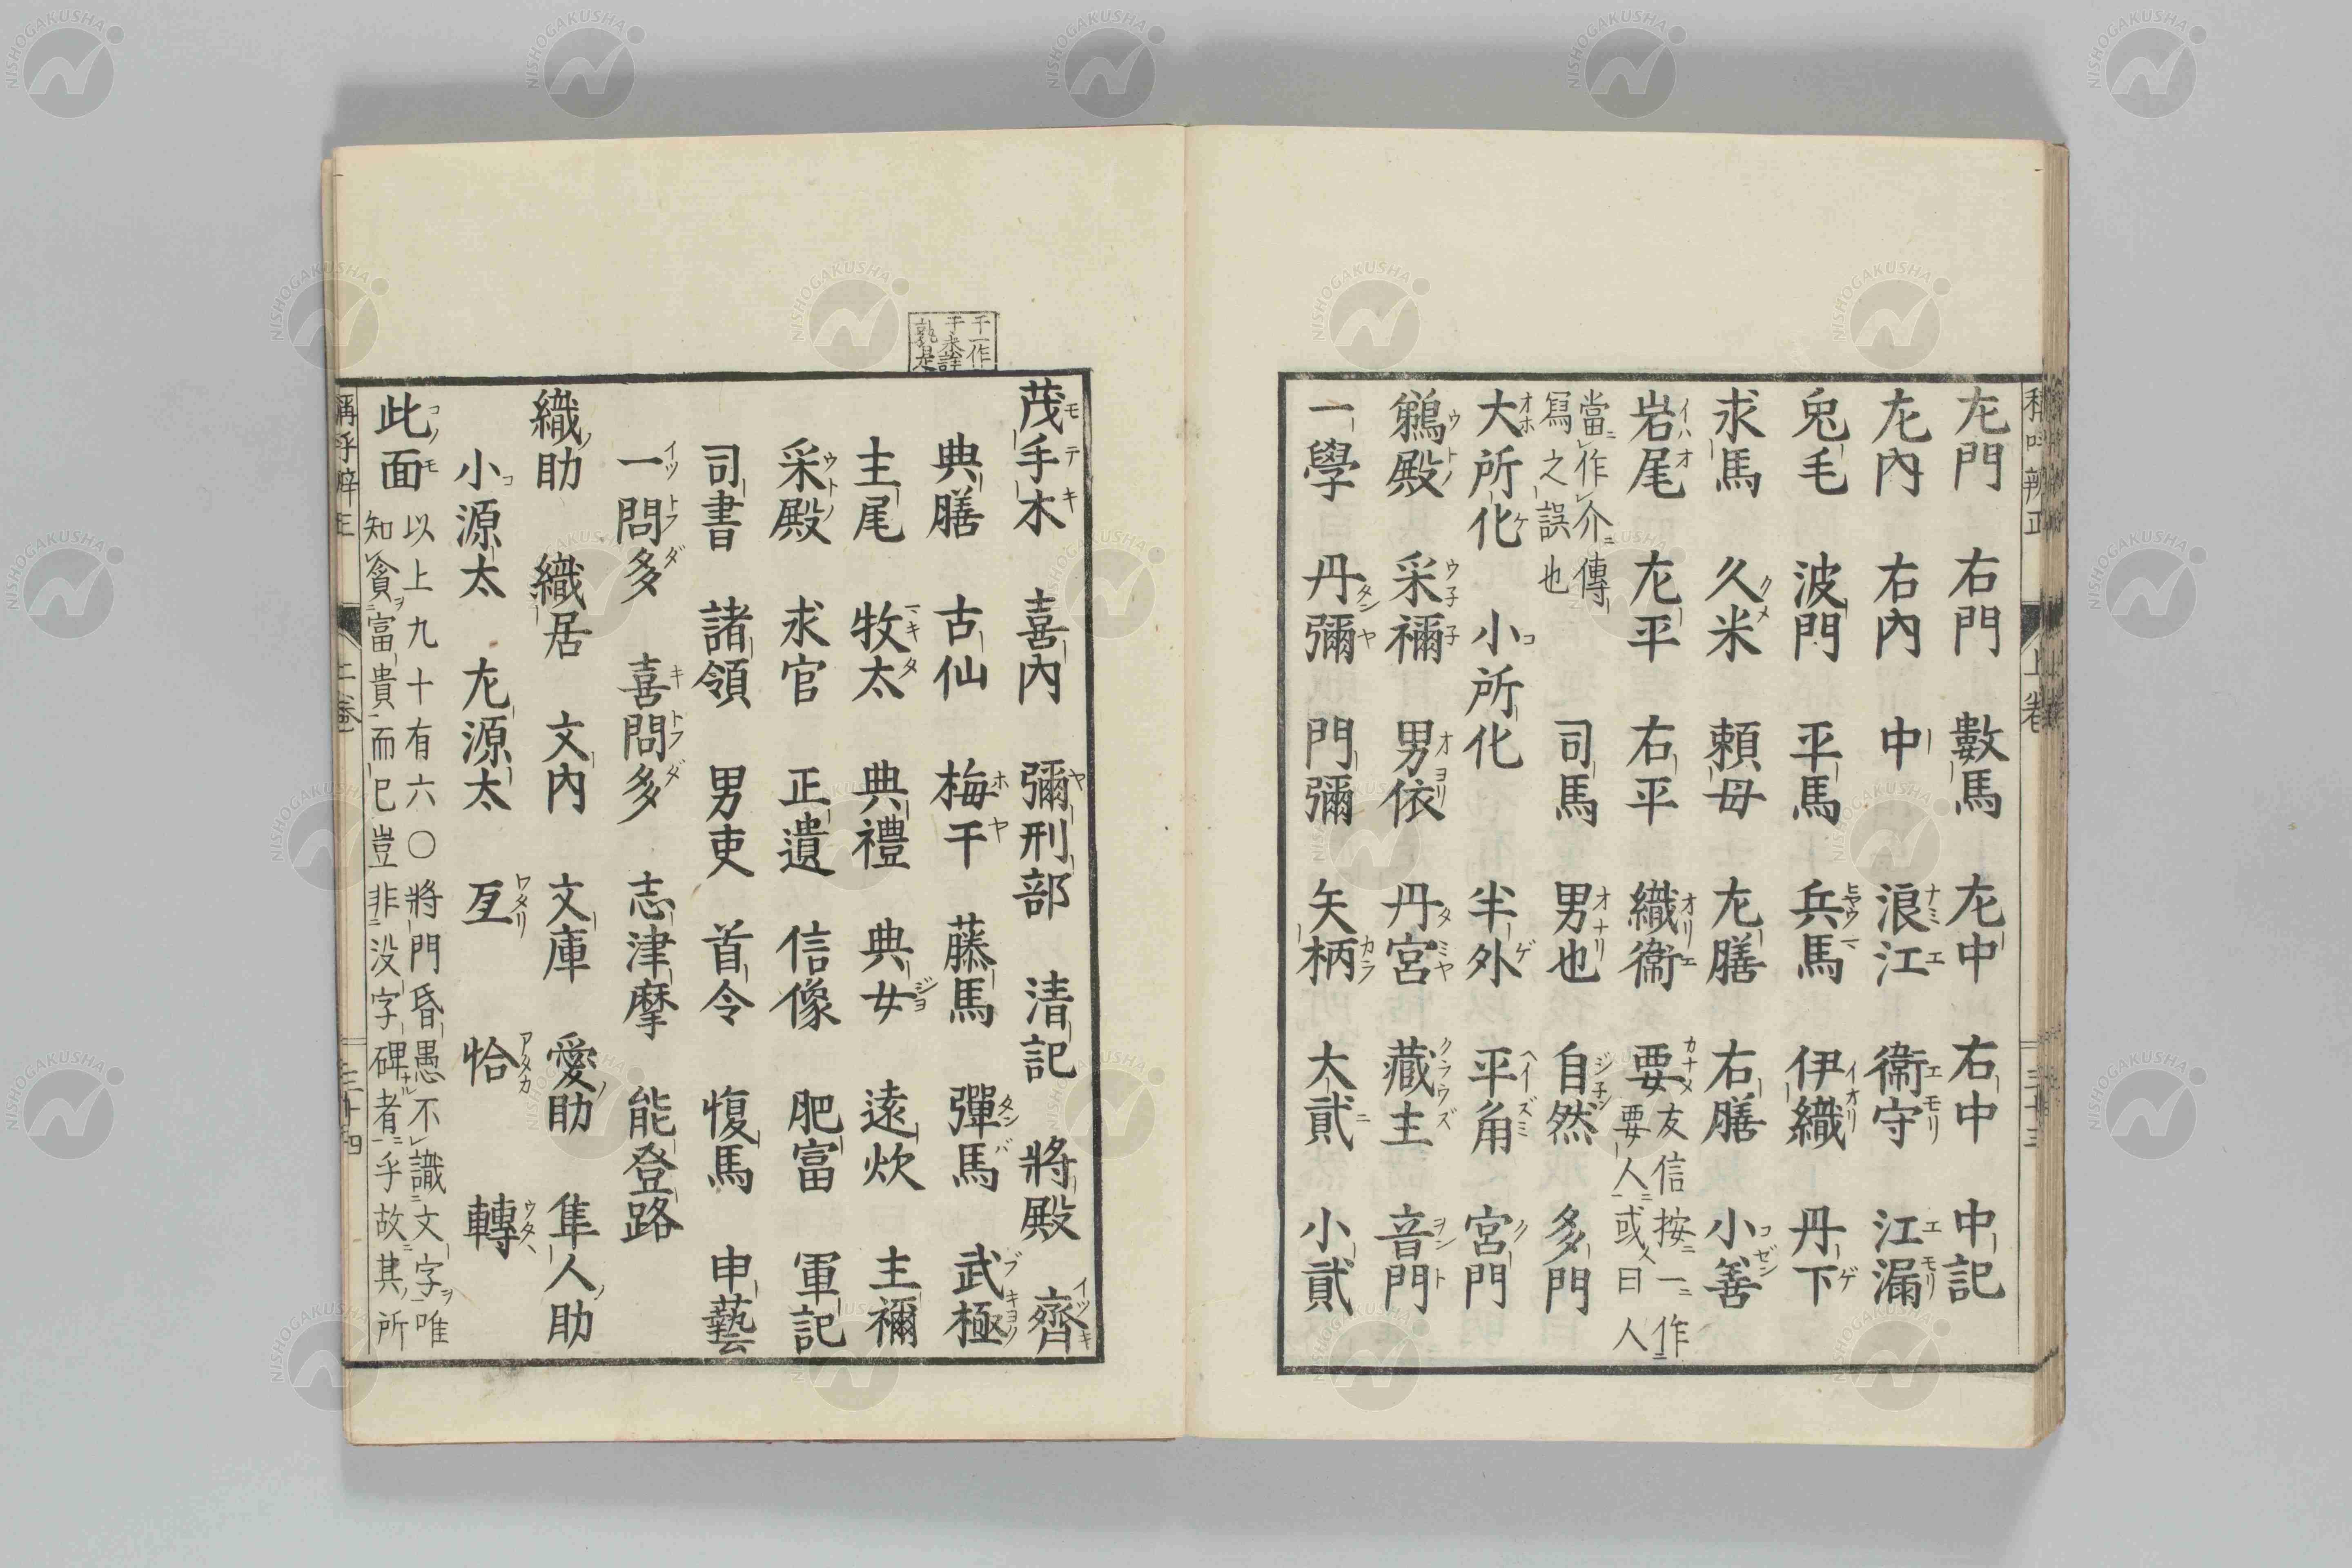 左門 右門 數馬 左中 右中 中記
左内 右内 中 浪江 衞守 江漏
兎毛 波門 平馬 兵馬 伊織 丹下
求馬 久米 頼母 左膳 右膳 小善
岩尾 左平 右平 織衞 要 友信按一作
要人或曰人
當作介傳
寫之誤也 司馬 男也 自然 多門
大所化 小所化 半外 平角 宮門
鵺殿 采禰 男依 丹宮 藏主 音門
一學 丹彌 門彌 矢柄 大貳 小貳
稱呼辨正 上卷 三十三
千一作
于未詳
孰是
茂手木 喜内 彌刑部 清記 將殿 齊
典膳 古仙 梅干 藤馬 彈馬 武極
主尾 牧太 典禮 典女 遠炊 主禰
采殿 求官 正遺 信像 肥富 軍記
司書 諸領 男吏 首令 愎馬 申藝
一問多 喜問多 志津摩 能登路
織助 織居 文内 文庫 愛助 隼人助
小源太 左源太 亙 恰 轉
此面 以上九十有六〇將門昏愚不識文字唯
知貪富貴而已豈非没字碑者乎故其所
稱呼辨正 上卷 三十四
NISHOGAKUSHA